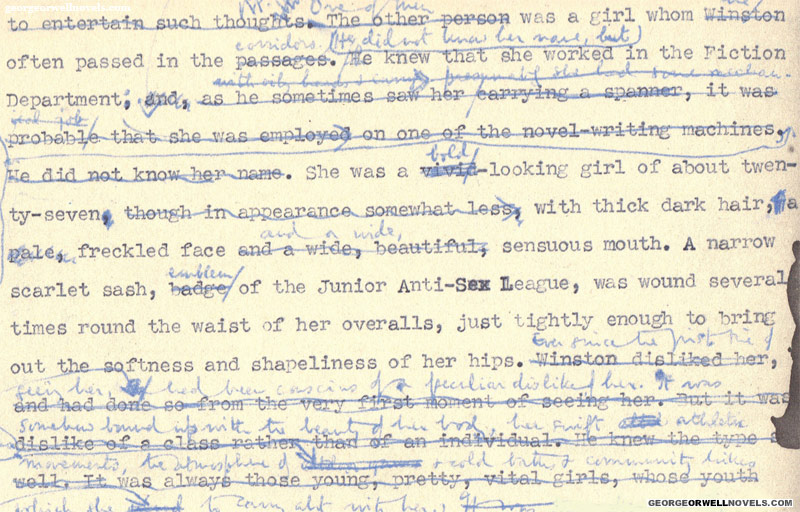 georgeorwellnovels.com
One of them
to entertain such thoughts. The other person was a girl whom Winston
corridors. (He did not know her name, but)
often passed in the passages. He knew that she worked in the Fiction
with oily hands presumably she had some mechan-
Department, and, as he sometimes saw her carrying a spanner, it was
ical job
probable that she was employed on one of the novel-writing machines.
He did not know her name. She was a vivid-looking girl of about twen-
bold
ty-seven, though in appearance somewhat less, with thick dark hair, a
and a wide,
pale, freckled face and a wide, beautiful, sensuous mouth. A narrow
emblem
scarlet sash, badge of the Junior Anti-Sex League, was wound several
times round the waist of her overalls, just tightly enough to bring
Ever since the first time of
out the softness and shapeliness of her hips. Winston disliked her,
seeing her, had been conscious of a peculiar dislike of her. It was
and had done so from the very first moment of seeing her. But it was
somehow bound up with the beauty of her body, her swift athletic
dislike of a class rather than of an individual. He knew the type
movements, the atmosphere of cold baths & community hikes
well. It was always those young, pretty, vital girls, whose youth
which she to carry about with her.
GEORGEORWELLNOVELS.COM